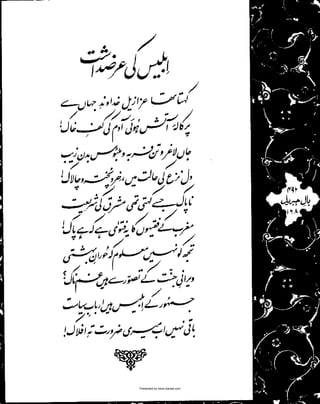 ابلیس کی عرضداشت
کہتا تھا عزازیل خداوندِ جہاں سے
پرکالۂ آتش ہوئی آدم کی کفِ خاک!
جاں لاغر و تن فربہ و ملبوس بدن زیب
دل نزع کی حالت میں، خرد پختہ و چالاک!
ناپاک جسے کہتی تھی مشرق کی شریعت
مغرب کے فقیہوں کا یہ فتویٰ ہے کہ ہے پاک!
تجھ کو نہیں معلوم کہ حورانِ بہشتی
ویرانیِ جنت کے تصور سے ہیں غمناک؟
جمہور کے ابلیس ہیں اربابِ سیاست
باقی نہیں اب میری ضرورت تہِ افلاک!
بالِ جبریل
Presented by www.ziaraat.com